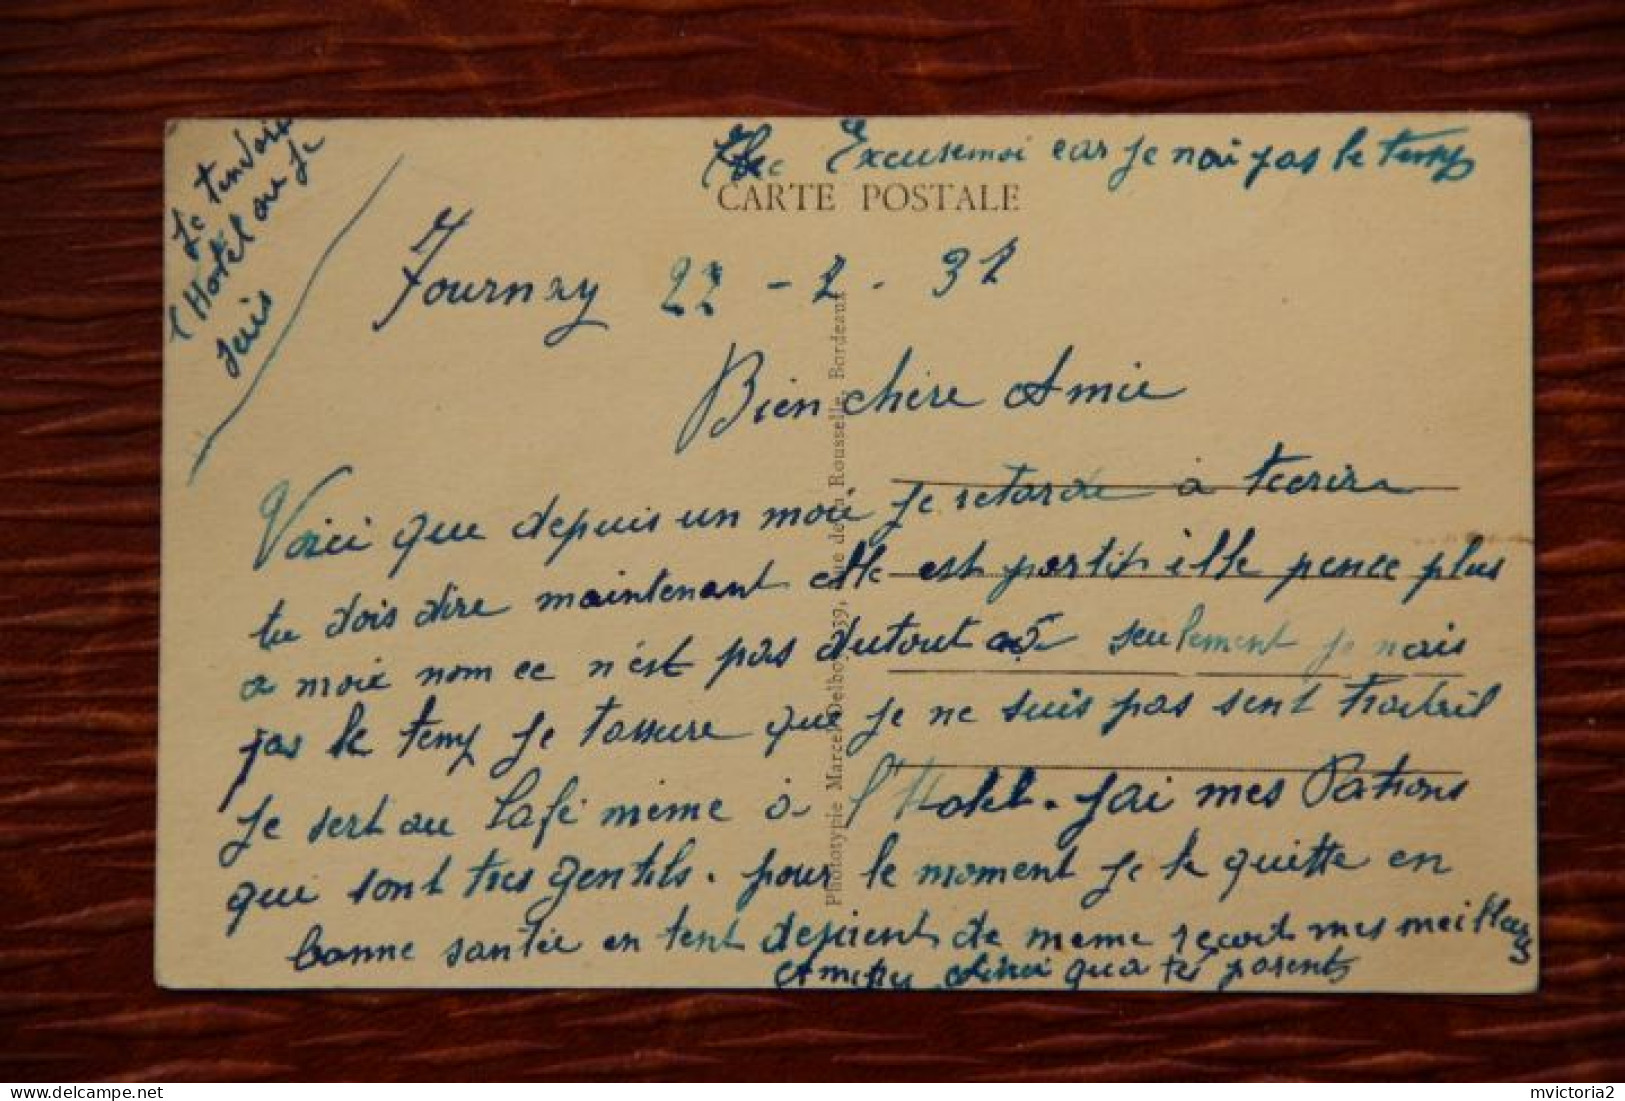 Je tenvoix
l'Hotel ou je
suis
Excusemoi car je n'ai pas le temp
CARTE POSTALE
Journay 22 - 2 - 32
Bien chère Amie
Voici que depuis un moi je retarde à tecrire
tu dois dire maintenant elle est partit elle pence plus
a moi nom ce n'est pas dutout ça seulement je nais
pas le temp je tassure que je ne suis pas sent travail
Je sert au Café même à l'Hotel. J'ai mes Patrons
qui sont tres gentils. pour le moment je te quitte en
bonne santée en tent depient de meme reçoit mes meilleurs
Amitiés ainsi qua tes parents
Phototypie Marcel Delboy, 39, rue de la Rousselle, Bordeaux
mvictoria2